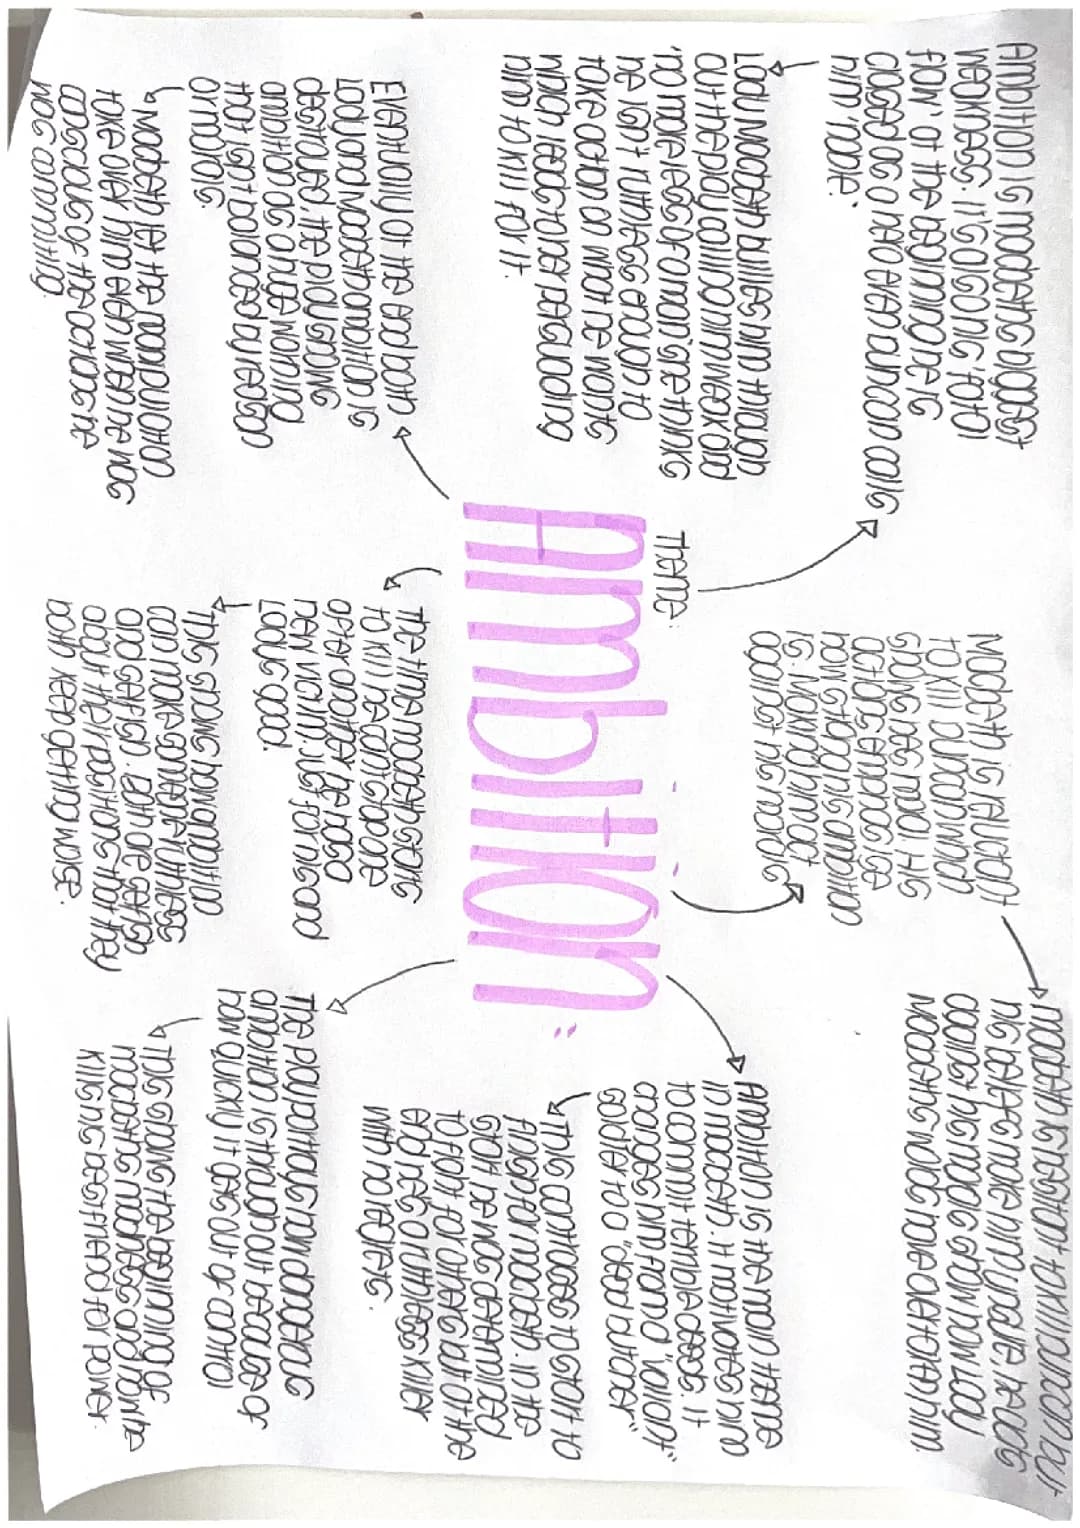 Theme:
Ambition:
Ambition is macbeths biggest
weakness. It's also his 'fatal
flaw' at the beginning he is
classed as a hero even duncan calls
him 'noble'.
Lady Macbeth bullies him through
out the play calling him weak and
'no more less of a man' she thinks
he isn't ruthless enough to
take action on what he wants
which leads to her persuading
him to kill for it.
Eventually at the end both
Lady and Macbeth ambition is
destroyed the play showing
ambition as a huge warning
that isn't balanced by reason
or morals.
Macbeth let the manipulation
take over him even when he was
conscious of the actions he
was committing.
Macbeth is reluctant
to kill duncan which
shows hes moral. His
actions enhances
how strong his ambition
is. Making him act
against his morals
macbeth is uneasy to kill duncan but
his beliefs make him unsure, he acts
against his morals show how Lady
Macbeths words have overtaken him.
The time macbeth starts
to kill he can't stop one
after another he has a
new victim. Just for his and
Ladys good.
This shows how ambition
can make someone ruthless
and selfish. Both are selfish
about their positions that they
both keep getting worse.
Ambition is the main theme
in macbeth. It motivates him
to commit terrible deeds. It
changes him from a "valiant"
soldier to a "dead butcher"
This continues to start to
finish for macbeth. In the
start he was determined
to fight for others but at the
end hes a ruthless killer
with no regrets.
The play shows how dangerous
ambition is throughout because of
how quickly it gets out of control
This shows the beginning of
macbeths madness and from the
killing his best friend for power.